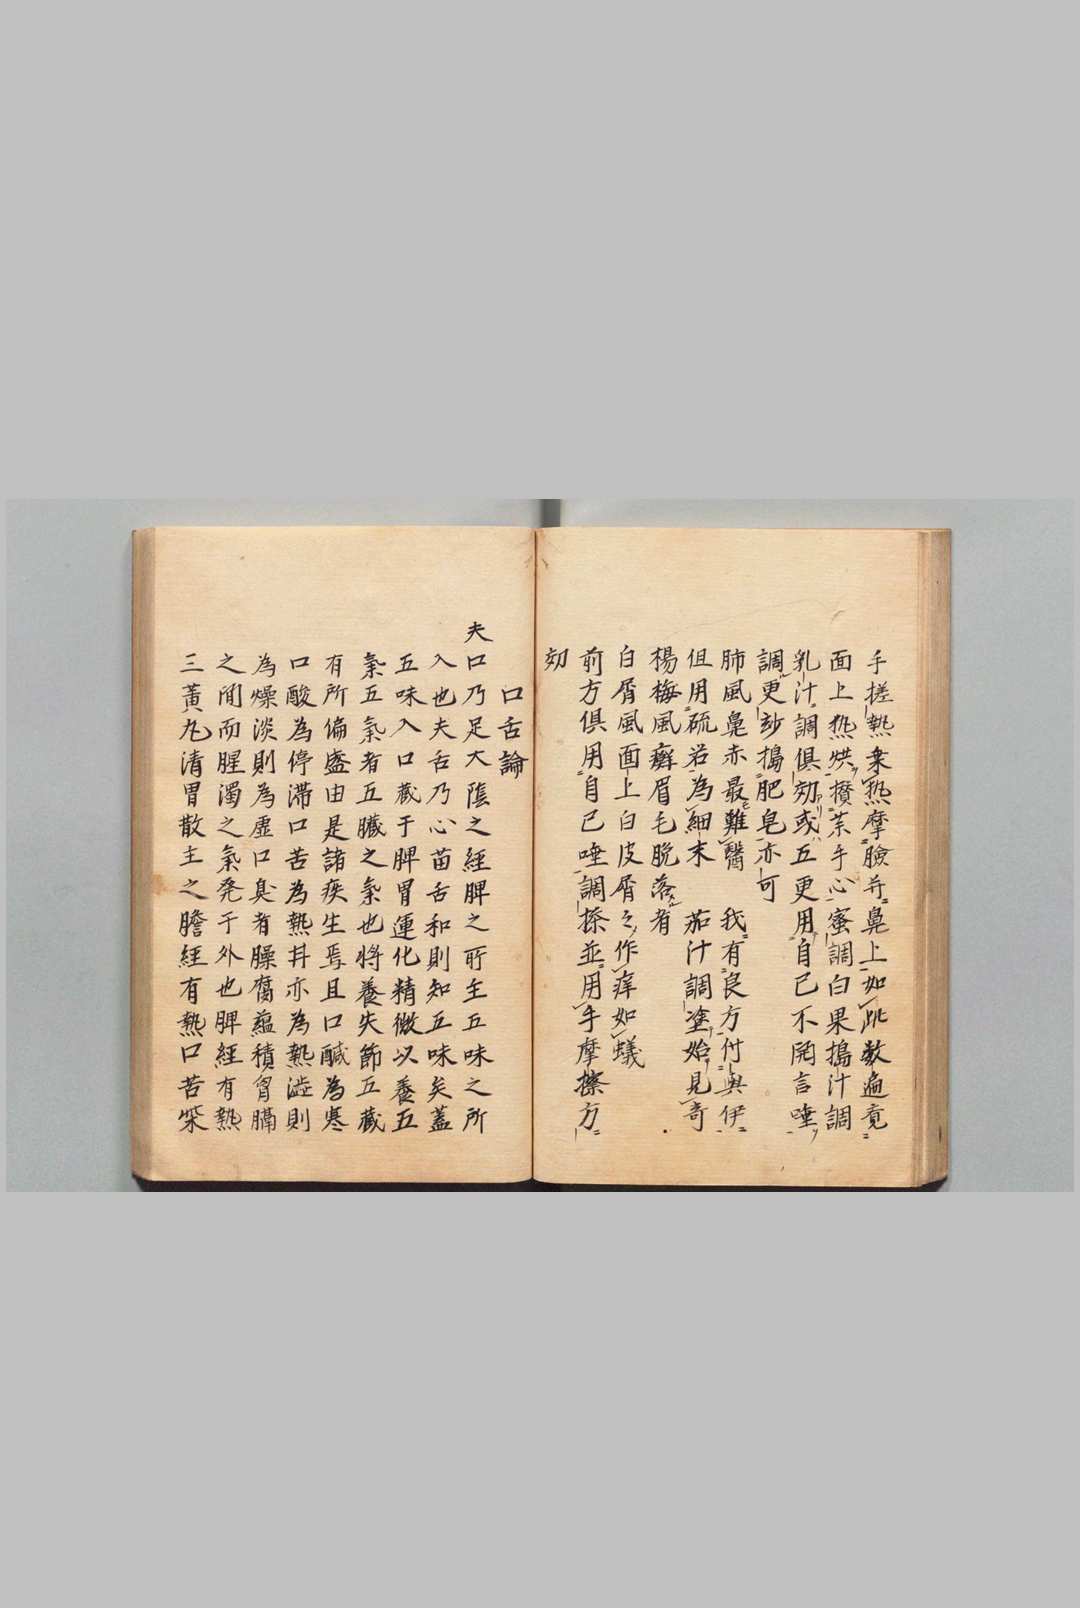 手搓熱乗熱摩臉并鼻上如此数遍竟
面上熱烘攢茱手心蜜調白果搗汁調
乳汁調俱効或五更用自已不開言唾
調更紗搗肥皂亦可
肺風鼻赤最難醫　我有良方付與伊
但用硫岩為細末　茄汁調塗始見奇
楊梅風癬眉毛脫落者
白屑風面上白皮屑々作痒如蟻
前方俱用自已唾調搽並用手摩擦方
効
口舌論
夫口乃足大陰之經脾之所主五味之所
入也夫舌乃心苗舌和則知五味矣蓋
五味入口藏于脾胃運化精微以養五
氣五氣者五臟之氣也將養失節五藏
有所偏盛由是諸疾生焉且口鹹為寒
口酸為停滯口苦為熱甘亦為熱澁則
為燥淡則為虛口臭者臊腐蘊積胷膈
之間而腥濁之氣発于外也脾經有熱
三黃丸清胃散主之膽經有熱口苦柴